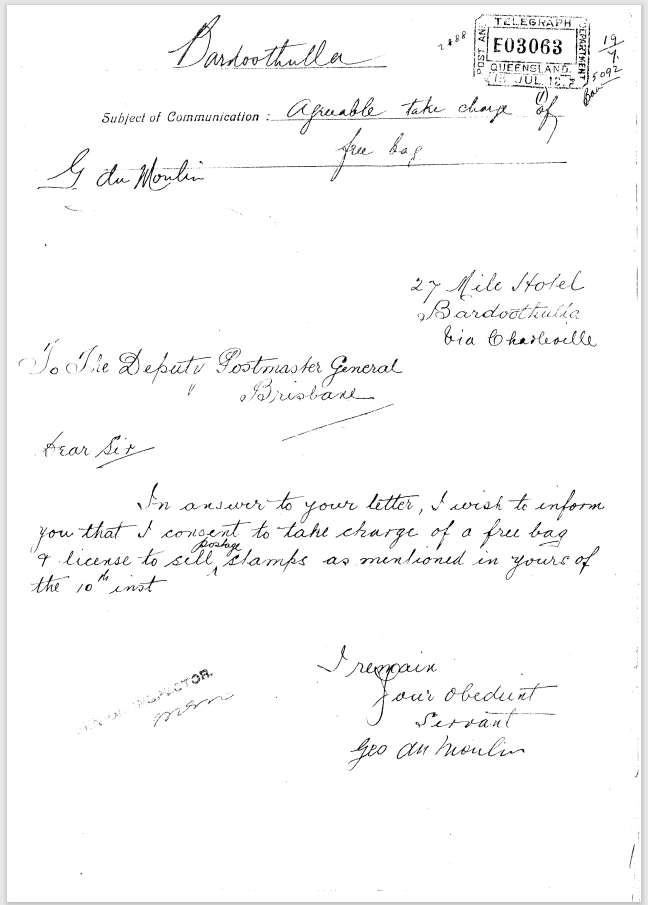 Bardoothulla
2888
POST AND TELEGRAPH DEPARTMENT
E03063
QUEENSLAND.
18 JUL 
19
7.
5092
Subject of Communication : Agreeable take charge (1) of
free bag
G du Moulin
27 Mile Hotel
Bardoothulla
Via Charleville
To The Deputy Postmaster General
Brisbane
Dear Sir
In answer to your letter, I wish to inform
you that I consent to take charge of a free bag
& license to sell postage stamps as mentioned in yours of
the 10th inst
I remain
Your obedient
Servant
Geo du Moulin
INSPECTOR.